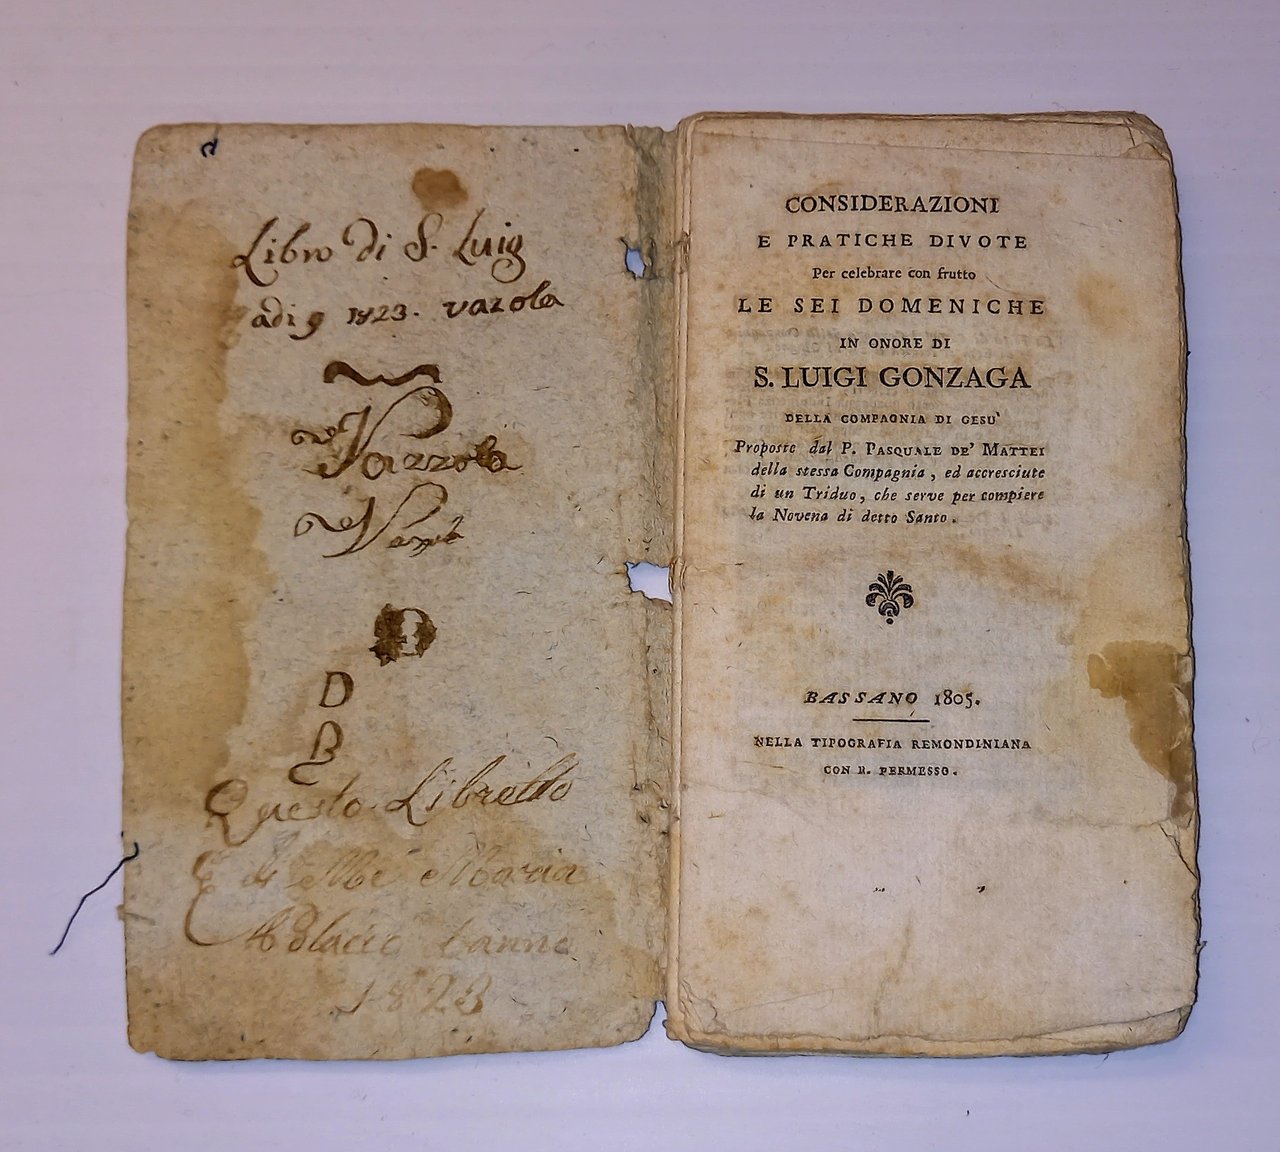 Libro di S. Luig
adi 9 1823. vazola
Vazzola
D
B
Questo Librello
E di Me Maria
1823
CONSIDERAZIONI
E PRATICHE DIVOTE
Per celebrare con frutto
LE SEI DOMENICHE
IN ONORE DI
S. LUIGI GONZAGA
DELLA COMPAGNIA DI GESU'
Proposte dal P. PASQUALE DE' MATTEI
della stessa Compagnia, ed accresciute
di un Triduo, che serve per compiere
la Novena di detto Santo.
BASSANO 1805.
NELLA TIPOGRAFIA REMONDINIANA
CON R. PERMESSO.